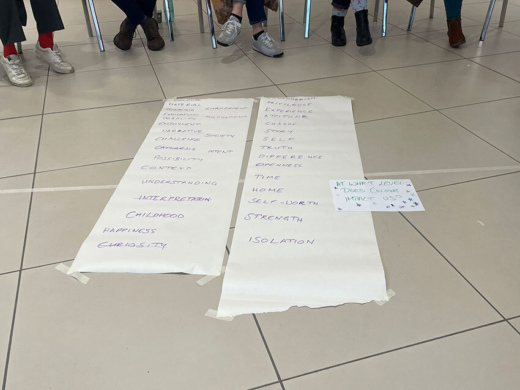 MATERIAL
JUDGEMENT
SOCIETY
CHALLENGE
INTENT
POSSIBILITY
CONTENT
UNDERSTANDING
INTERPRETATION
CHILDHOOD
HAPPINESS
CURIOSITY
RESILIENCE
EXPERIENCE
STORY
SELF
TRUTH
DIFFERENCE
OPENNESS
TIME
HOME
SELF-WORTH
STRENGTH
ISOLATION
AT WHAT LEVEL
DOES COLOUR
IMPACT US?